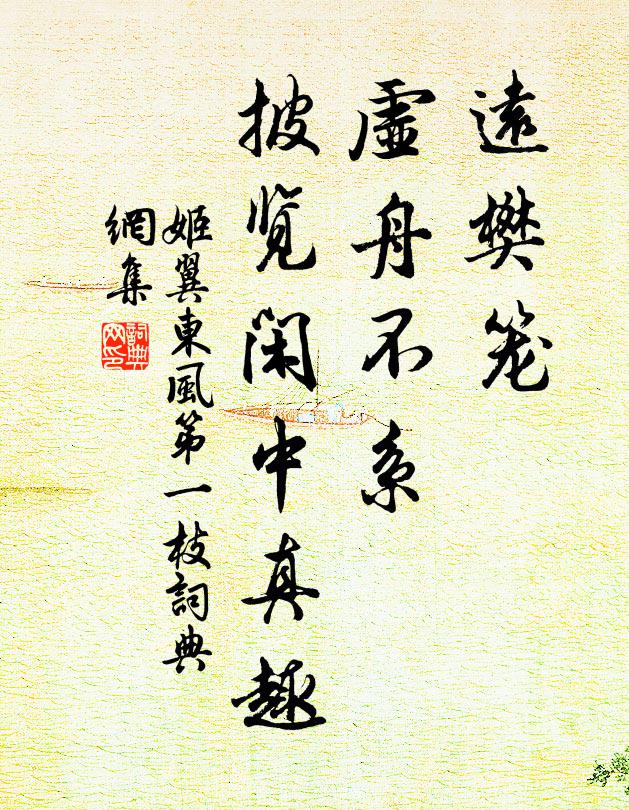 遠樊笼
虚舟不系
披览闲中真趣
姬翼東風第一枝詞典
網集
詞典网印